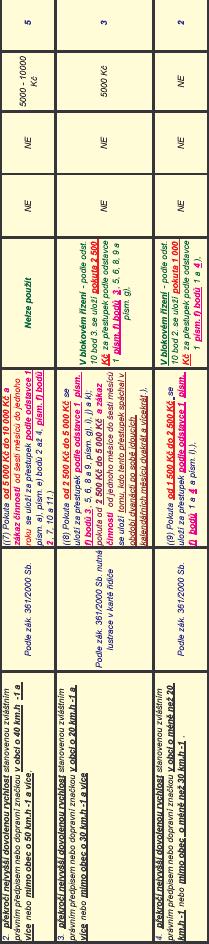 2. překročí nejvyšší dovolenou rychlost stanovenou zvláštním
právním předpisem nebo dopravní značkou v obci o 40 km.h -1 a
více nebo mimo obec o 50 km.h -1 a více,
Podle zák. 361/2000 Sb.
((7) Pokuta od 5 000 Kč do 10 000 Kč a
zákaz činnosti od šesti měsíců do jednoho
roku se uloží za přestupek podle odstavce 1
písm. a), písm. e) bodu 2 až 4, písm. f) bodů
2, 7, 10 a 11.)
Nelze použít
NE
NE
5000 - 10000
Kč
5
3. překročí nejvyšší dovolenou rychlost stanovenou zvláštním
právním předpisem nebo dopravní značkou v obci o 20 km.h -1 a
více nebo mimo obec o 30 km.h -1 a více
Podle zák. 361/2000 Sb. nutná
lustrace v kartě řidiče
((8) Pokuta od 2 500 Kč do 5 000 Kč se
uloží za přestupek podle odstavce 1 písm.
f) bodů 3, 5, 6, 8 a 9, písm. g), i), j) a k);
pokuta od 2 500 Kč do 5 000 Kč a zákaz
činnosti od jednoho měsíce do šesti měsíců
se uloží tomu, kdo tento přestupek spáchal v
období dvanácti po sobě jdoucích
kalendářních měsíců dvakrát a vícekrát.),
V blokovém řízení - podle odst.
10 bod 3. se uloží pokuta 2 500
Kč za přestupek podle odstavce
1 písm. f) bodů 3, 5, 6, 8, 9 a
písm. g),
NE
NE
5000 Kč
3
4. překročí nejvyšší dovolenou rychlost stanovenou zvláštním
právním předpisem nebo dopravní značkou v obci o méně než 20
km.h -1 nebo mimo obec o méně než 30 km.h -1 ,
Podle zák. 361/2000 Sb.
((9) Pokuta od 1 500 Kč do 2 500 Kč se
uloží za přestupek podle odstavce 1 písm.
f) bodů 1 a 4 a písm. l).),
V blokovém řízení - podle odst.
10 bod 2. se uloží pokuta 1 000
Kč za přestupek podle odstavce
1 písm. f) bodů 1 a 4 ).
NE
NE
NE
2